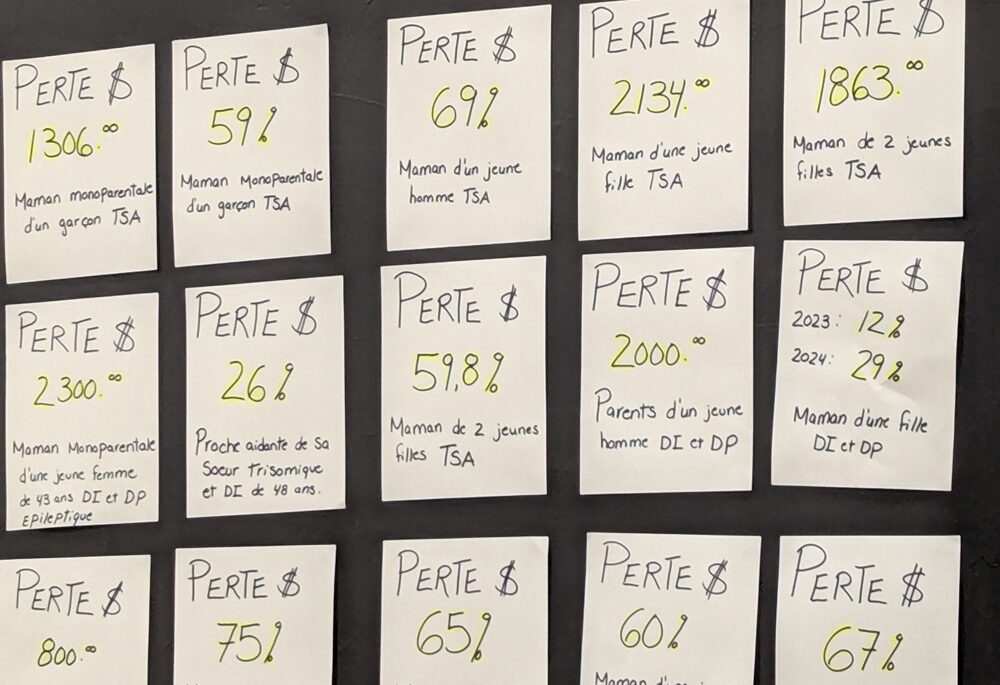 PERTE $
1306.00
Maman monoparentale
d'un garçon TSA
PERTE $
59%
Maman Monoparentale
d'un garçon TSA
PERTE $
69%
Maman d'un jeune
homme TSA
PERTE $
2134.00
Maman d'une jeune
fille TSA
PERTE $
1863.00
Maman de 2 jeunes
filles TSA
PERTE $
2300.00
Maman Monoparentale
d'une jeune femme
de 43 ans DI et DP
Epileptique
PERTE $
26%
Proche aidante de sa
Soeur trisomique
et DI de 48 ans.
PERTE $
59,8%
Maman de 2 jeunes
filles TSA
PERTE $
2000.00
Parents d'un jeune
homme DI et DP
PERTE $
2023: 12%
2024: 29%
Maman d'une fille
DI et DP
PERTE $
800.00
PERTE $
75%
PERTE $
65%
PERTE $
60%
PERTE $
67%